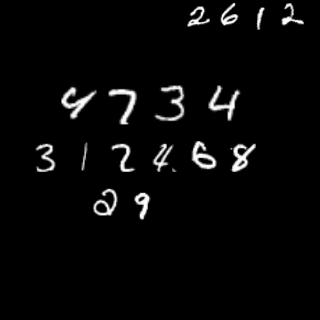 2612
4734
312468
29